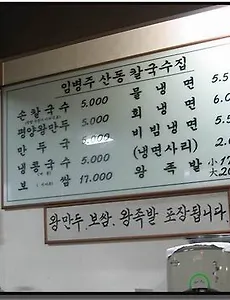 임병주 산동 칼국수집
손칼국수 5.000
평양왕만두 5.000
만두국 5.000
냉콩국수 5.000
보쌈 17.000
물냉면 5.5
회냉면 6.0
비빔냉면 5.5
(냉면사리) 2.0
왕족발 소17 대20
왕만두, 보쌈, 왕족발 포장됩니다.